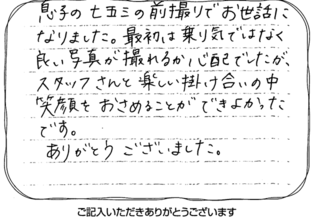 息子の七五三の前撮りでお世話に
なりました。最初は乗り気ではなく
良い写真が撮れるか心配でしたが、
スタッフさんと楽しい掛け合いの中
笑顔をおさめることができよかった
です。
ありがとうございました。
ご記入いただきありがとうございます